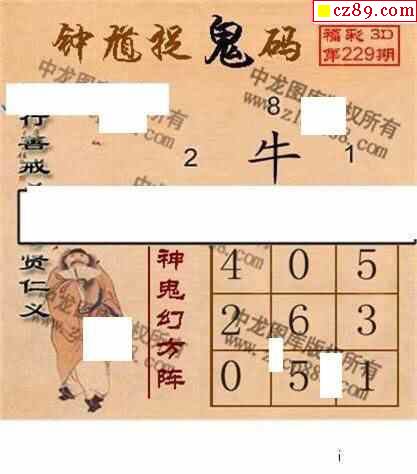 cz89.com
钟馗捉鬼码
福彩3D
第229期
中龙图库版权所有
8
2
牛
1
行善戒
贤仁义
神鬼幻方阵
4 0 5
2 6 3
0 5 1
中龙图库版权所有
i